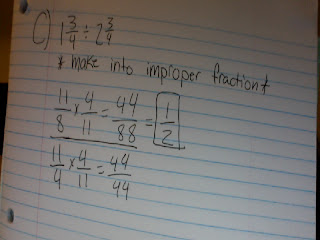 C) 1 3/4 ÷ 2 3/4
* make into improper fraction
11/8 × 4/11 = 44/88 = 1/2
11/4 × 4/11 = 44/44